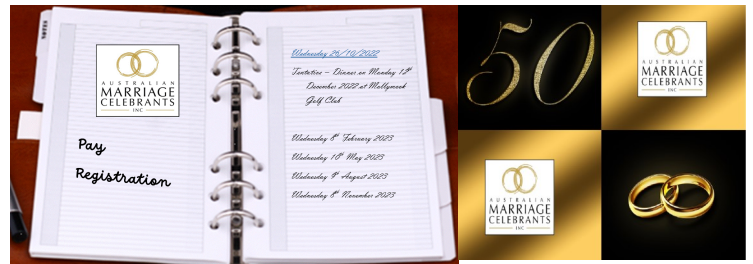 AUSTRALIAN
MARRIAGE
CELEBRANTS
INC
Pay
Registration
Wednesday 26/10/2022
Tentative – Dinner on Monday 12th
December 2022 at Mollymook
Golf Club
Wednesday 8th February 2023
Wednesday 10th May 2023
Wednesday 9th August 2023
Wednesday 8th November 2023
50
AUSTRALIAN
MARRIAGE
CELEBRANTS
INC
AUSTRALIAN
MARRIAGE
CELEBRANTS
INC